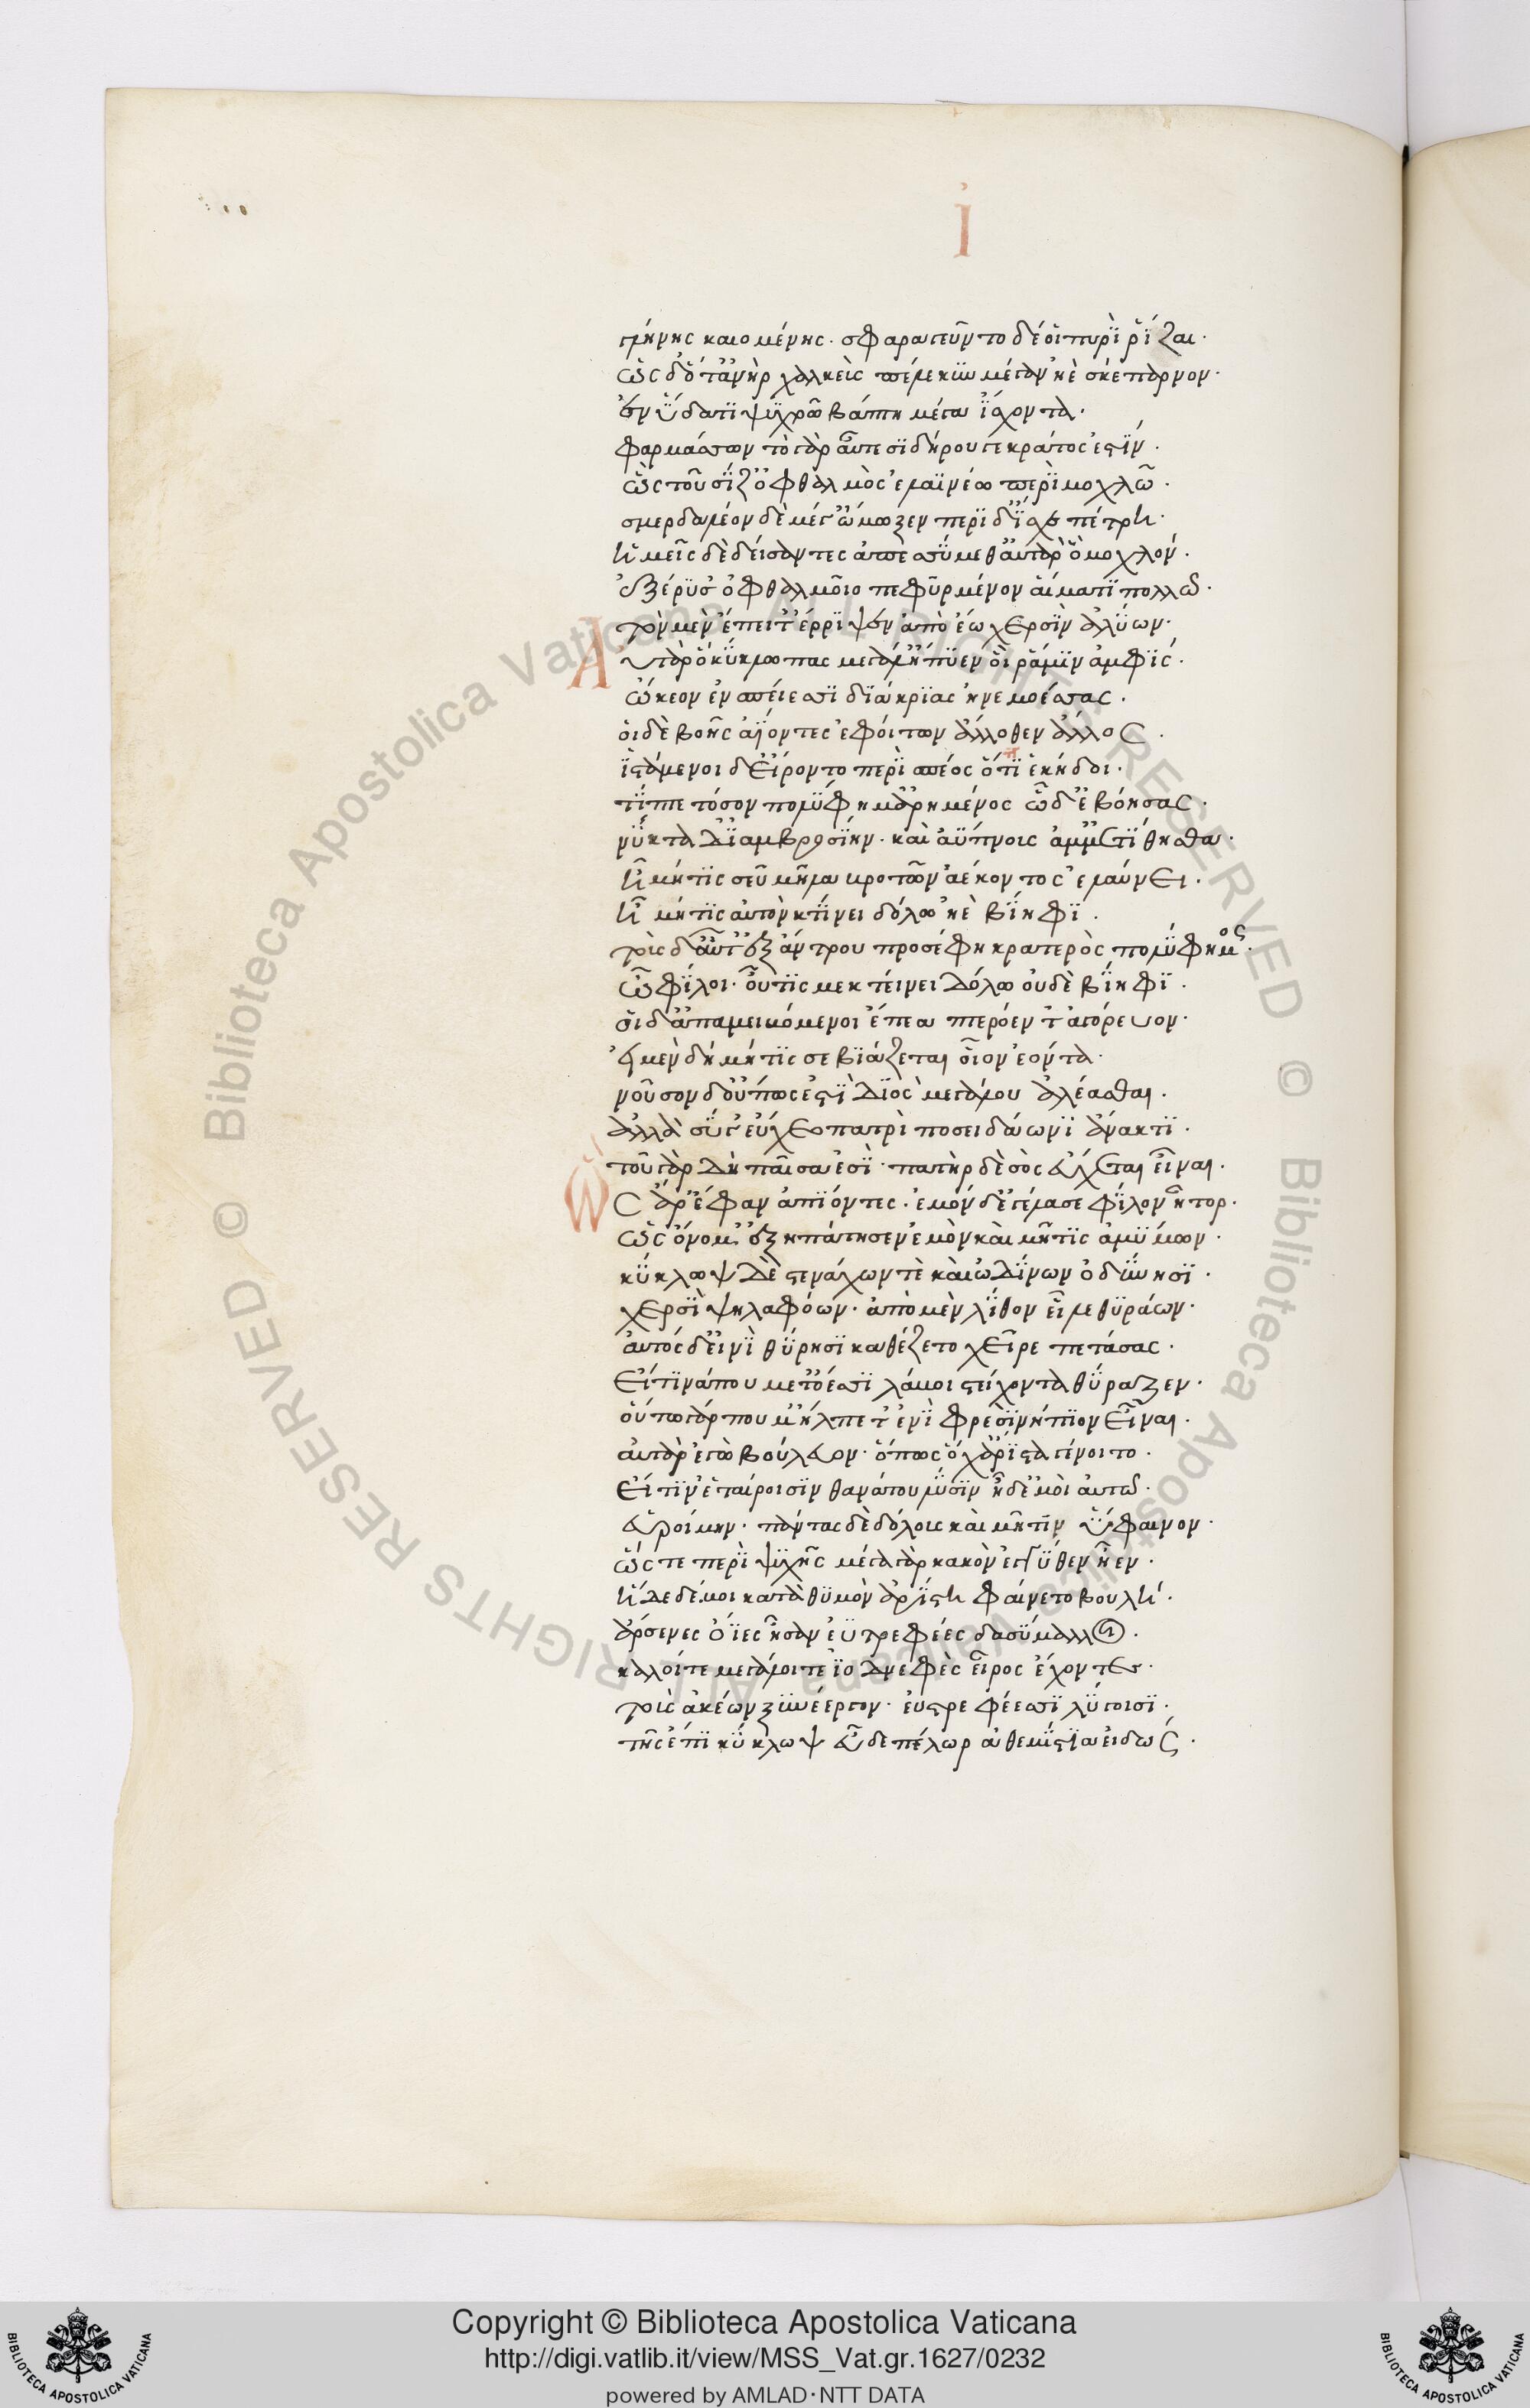 i
γλήνης καιομένης· σφαραγεῦντο δέ ὁι πυρῒ ῥΐζαι·
ὡς δ' ὅτ' ἀνὴρ χαλκεὶς πέλεκϋν μέγαν ἠὲ σκέπαρνον·
ἐν ὕδατϊ ψϋχρῶ βάπτη μέγα ϊάχοντα·
φαρμάσσων τὸ γὰρ αὖτε σϊδήρου γε κράτος ἐστϊν·
ὣς τοῦ σΐζ' ὀφθαλμὸς ἐλαϊνέω περὶ μοχλῶ·
σμερδαλέον δὲ μέγ' ὤμωξεν περϊ δ' ΐαχε πέτρη·
ἡμεῖς δὲ δείσαντες ἀπεσσύμεθ' αὐτὰρ ὃ μοχλὸν·
ἐξέρϋσ' ὀφθαλμοῖο πεφϋρμένον ἁίματϊ πολλῶ·
τὸν μὲν ἔπειτ' ἔρρϊψεν ἀπὸ ἕω χερσῒν ἀλΰων·
Αυτὰρ ὃ κΰκλωπας μεγάλ' ἤπϋεν ὅι ῥά μϊν ἀμφϊς·
ὤκεον ἐν σπείεσσϊ δϊάκρϊας ἠνεμοέσσας·
ὁι δὲ βοῆς ἀΐοντες ἐφοίτων ἄλλοθεν ἄλλος·
ϊστάμενοι δ' εἴροντο περῒ σπέος ὅττϊ ἑ κήδοι·
τΐπτε τόσον πολΰφημ' ἀρημένος ὧδ' ἐβόησας·
νΰκτα δϊ' ἀμβροσΐην· καὶ ἀΰπνοις ἄμμε τΐθησθα·
ἦ μήτϊς σεῦ μῆλα βροτῶν ἀέκοντος ἐλαύνει·
ἦ μήτϊς σ' αὐτὸν κτΐνει δόλω ἠὲ βΐηφϊ·
τοὺς δ' αὖτ' ἐξ ἄντρου προσέφη κρατερὸς πολΰφημος·
ὦ φΐλοι· οὖτϊς με κτείνει δόλω οὐδὲ βΐηφϊ·
οἳ δ' ἀπαμειβόμενοι ἔπεα πτερόεντ' ἀγόρευον·
ἐι μὲν δὴ μή τϊς σε βϊάζεται οἶον ἐόντα·
νοῦσον δ' οὔπως ἐστῒ Δϊὸς μεγάλου ἀλέασθαι·
ἀλλὰ σΰ γ' εὔχεο πατρὶ ποσειδάωνϊ ἄνακτϊ·
τοῦ γὰρ δὴ πάϊς ἐσσῒ· πατὴρ δὲ σὸς εὔχεται εἶναι·
Ὣς ἄρ' ἔφαν ἀπϊόντες· ἐμὸν δ' ἐγέλασε φΐλον ἦτορ·
ὡς ὄνομ' ἐξηπάτησεν ἐμὸν καὶ μῆτϊς ἀμΰμων·
κΰκλωψ δὲ στενάχων τὲ καὶ ὠδΐνων ὀδΰνησϊ·
χερσῒ ψηλαφόων· ἀπὸ μὲν λΐθον εἷλε θϋράων·
ἀυτὸς δ' εἰνῒ θΰρησϊ καθέζετο χεῖρε πετάσας·
εἴ τϊνά που μετ' ὀέσσϊ λάβοι στείχοντα θΰραζεν·
οὕτω γάρ που μ' ἤλπετ' ἐνῒ φρεσῒ νήπϊον εἶναι·
αὐτὰρ ἐγὼ βούλευον· ὅπως ὄχ' ἄρϊστα γένοιτο·
εἴ τϊν' ἑταίροισϊν θανάτου λΰσϊν ἠδ' ἐμοὶ αὐτῶ·
εὑροίμην· πάντας δὲ δόλοις καὶ μῆτϊν ὕφαινον·
ὥς τε περῒ ψϋχῆς μέγα γὰρ κακὸν ἐγγΰθεν ἦεν·
ἥδε δέ μοι κατὰ θϋμὸν ἀρΐστη φαίνετο βουλή·
ἄρσενες ὄϊες ἦσαν ἐϋτρεφέες δασΰμαλλοι·
καλοί τε μεγάλοι τε ϊοδνεφὲς εἶρος ἔχοντες·
τοὺς ἀκέων ξϋνέεργον· ἐυστρεφέεσσϊ λΰγοισϊ·
τῆς ἔπϊ κΰκλωψ εὗδε πέλωρ ἀθεμΐστϊα εἰδώς·
© Biblioteca Apostolica Vaticana ALL RIGHTS RESERVED © Biblioteca Apostolica Vaticana ALL RIGHTS RESERVED
Copyright © Biblioteca Apostolica Vaticana
http://digi.vatlib.it/view/MSS_Vat.gr.1627/0232
powered by AMLAD·NTT DATA
BIBLIOTECA APOSTOLICA VATICANA
BIBLIOTECA APOSTOLICA VATICANA